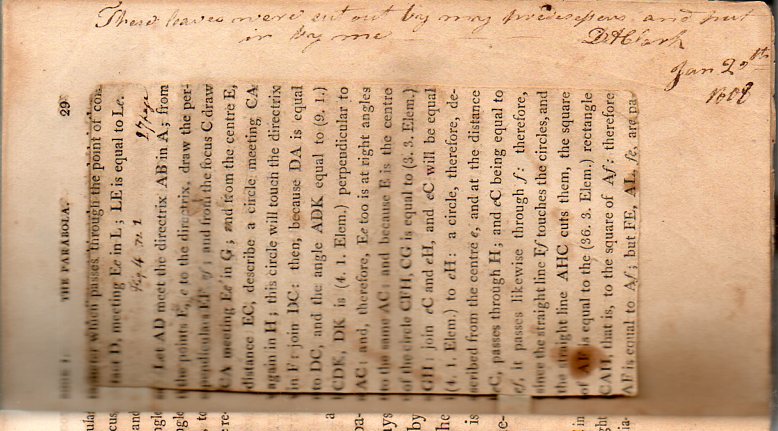 These leaves were cut out by my predesessors and put
in by me
D H Clark
Jan 29th
BOOK I. THE PARABOLA. 29
which passes through the point of con-
tact D, meeting Ee in L; LE is equal to Le.
Fig. 4. n. 1. 27 page
Let AD meet the directrix AB in A; from
the points E, e to the directrix, draw the per-
pendiculars EF, ef; and from the focus C draw
CA meeting Ee in G; and from the centre E,
distance EC, describe a circle meeting CA
again in H; this circle will touch the directrix
in F: join DC: then, because DA is equal
to DC, and the angle ADK equal to (9. 1.)
CDK, DK is (4. 1. Elem.) perpendicular to
AC: and, therefore, Ee too is at right angles
to the same AC: and because E is the centre
of the circle CFH, CG is equal to (3. 3. Elem.)
GH; join eC and eH, and eC will be equal
(4. 1. Elem.) to eH: a circle, therefore, de-
scribed from the centre e, and at the distance
eC, passes through H; and eC being equal to
ef, it passes likewise through f: therefore,
since the straight line Ff touches the circles, and
the straight line AHC cuts them, the square
of AF is equal to the (36. 3. Elem.) rectangle
CAH, that is, to the square of Af: therefore
AF is equal to Af; but FE, AL, fe, are pa-